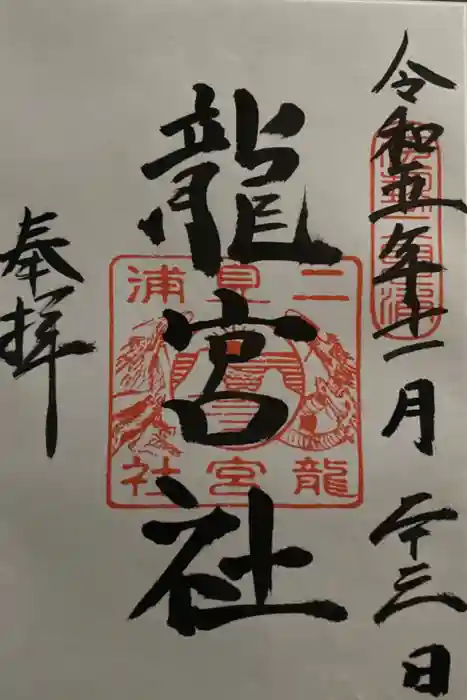 令和五年十一月二十三日
龍宮社
奉拝
二見浦
龍宮社